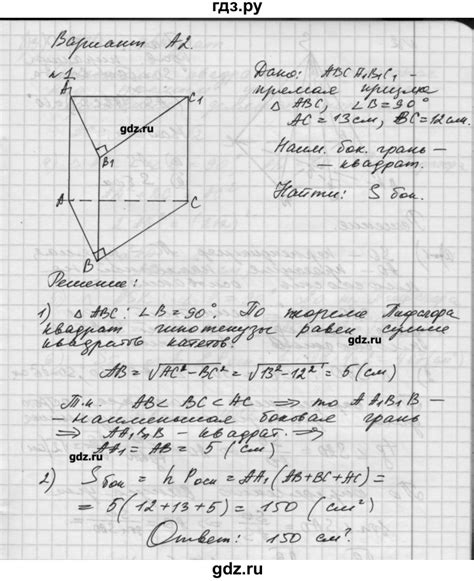 гдз.ру
Вариант А2.
№1
A1
C1
B1
A
C
B
gdz.ru
gdz.ru
Дано: ABCA1B1C1 -
прямая призма
△ ABC, ∠B=90°
AC = 13см, BC=12см.
Наим. бок. грань -
- квадрат.
Найти: S бок.
Решение:
1) △ ABC: ∠B=90°. По теореме Пифагора
квадрат гипотенузы равен сумме
квадратов катетов:
AB = √AC²-BC² = √13²-12² = 5(см)
Т.к. AB < BC < AC ⇒ то AA1B1B -
- наименьшая боковая грань
⇒ AA1B1B - квадрат. ⇒
AA1 = AB = 5 (см)
gdz.ru
gdz.ru
2) Sбок = h Pосн = AA1(AB+BC+AC) =
= 5(12+13+5) = 150 (см²)
Ответ: 150 см².
gdz.ru